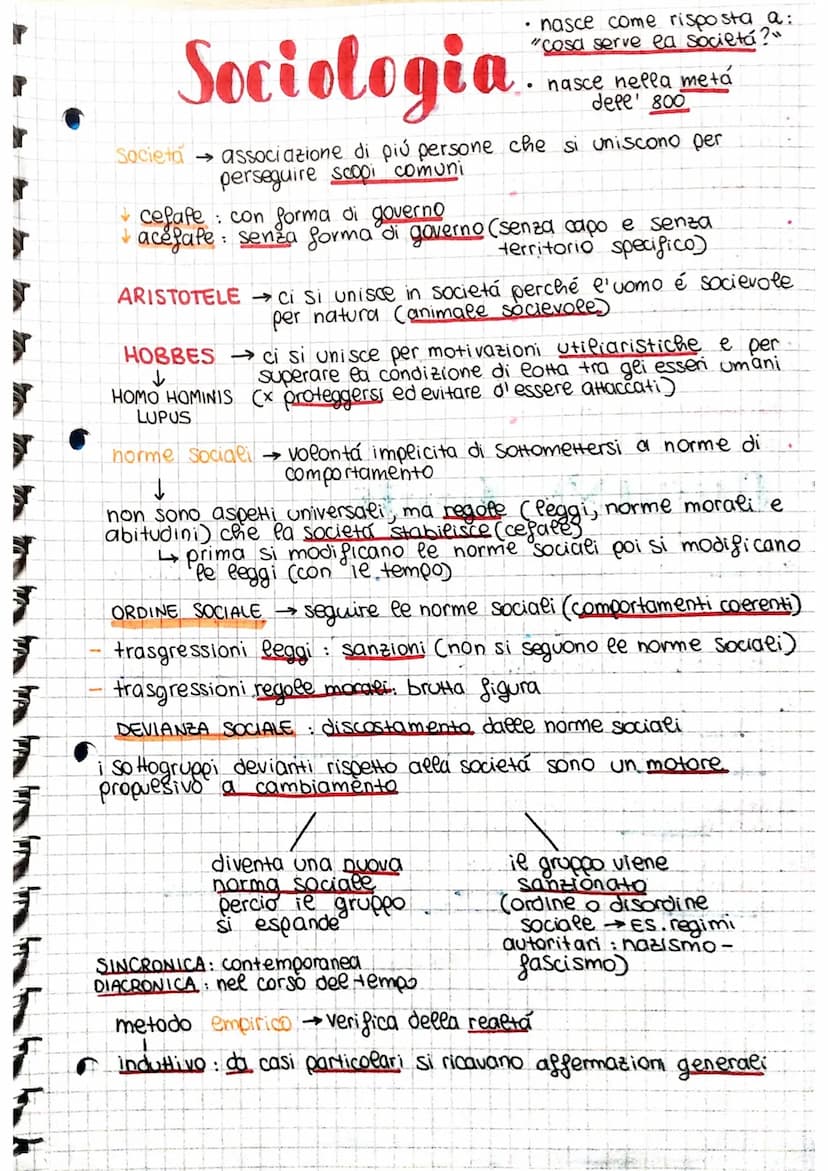 Sociologia
• nasce come risposta a:
"cosa serve la societá?"
• nasce nella metá
dell' 800
societá → associazione di piú persone che si uniscono per
perseguire scopi comuni
↓ cefale : con forma di governo
↓ acefale : senza forma di governo (senza capo e senza
territorio specifico)
ARISTOTELE → ci si unisce in societá perché l'uomo é socievole
per natura (animale socievole)
HOBBES → ci si unisce per motivazioni utiliaristiche e per
↓ superare la condizione di lotta tra gli esseri umani
HOMO HOMINIS (x proteggersi ed evitare d'essere attaccati)
LUPUS
norme sociali → volontá implicita di sottomettersi a norme di
↓ comportamento
non sono aspetti universali, ma regole (leggi, norme morali e
abitudini) che la societá stabilisce (cefale)
↳ prima si modificano le norme sociali poi si modificano
le leggi (con il tempo)
ORDINE SOCIALE → seguire le norme sociali (comportamenti coerenti)
- trasgressioni leggi : sanzioni (non si seguono le norme sociali)
- trasgressioni regole morali: brutta figura
DEVIANZA SOCIALE : discostamento dalle norme sociali
i sottogruppi devianti rispetto alla societá sono un motore
propulsivo a cambiamento
diventa una nuova
norma sociale
perció il gruppo
si espande
il gruppo viene
sanzionato
(ordine o disordine
sociale → ES. regimi
autoritari : nazismo -
fascismo)
SINCRONICA: contemporanea
DIACRONICA : nel corso del tempo
metodo empirico → verifica della realtá
induttivo : da casi particolari si ricavano affermazioni generali